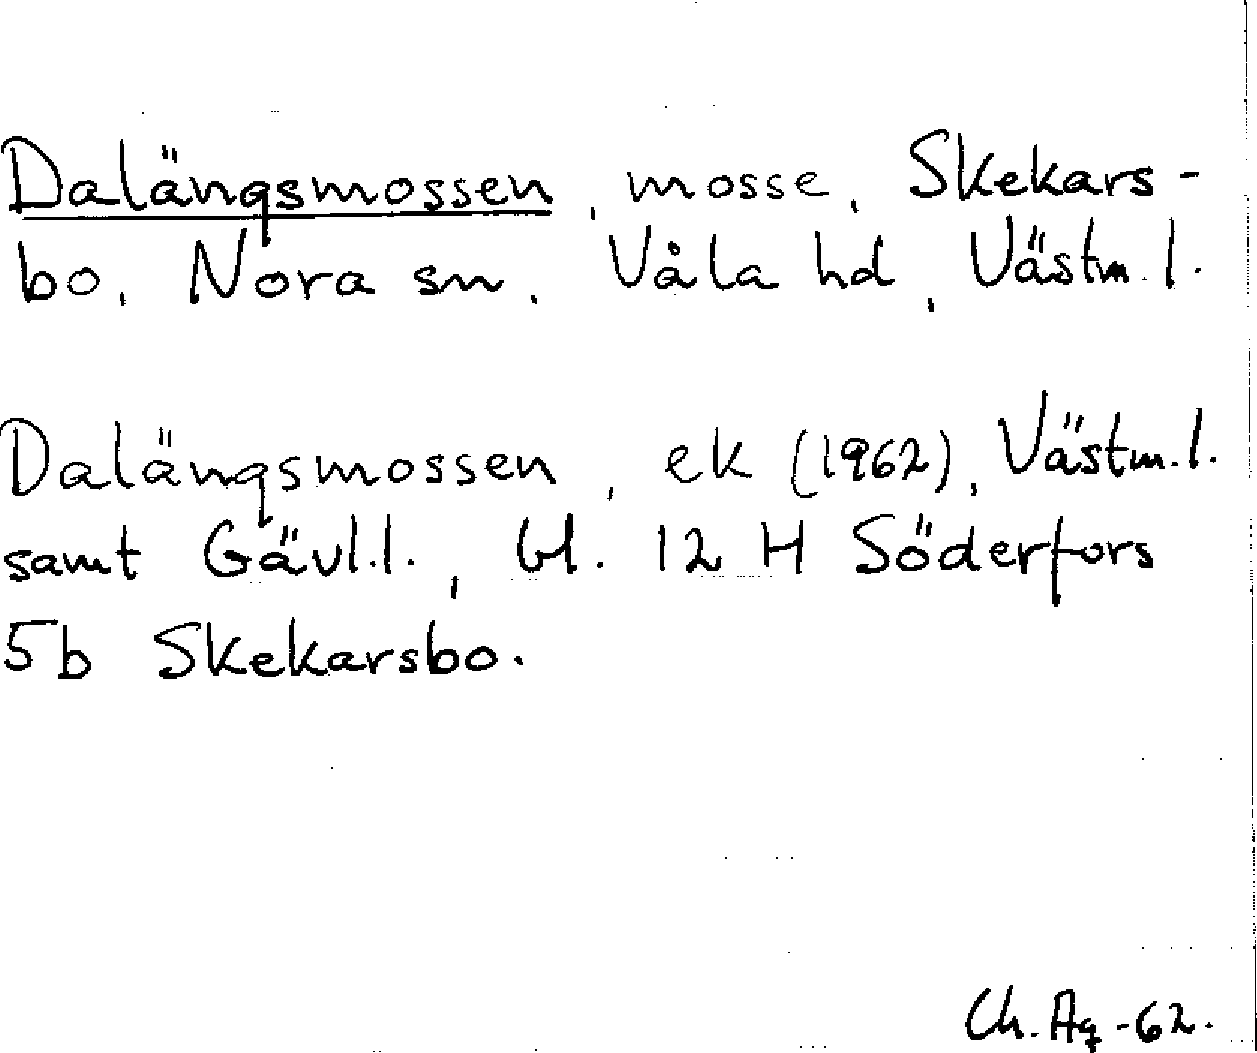 Dalängsmossen, mosse, Skekars-
bo, Nora sn, Våla hd, Västm.l.
Dalängsmossen, ek (1962), Västm.l.
samt Gävl.l., bl. 12 H Söderfors
5b Skekarsbo.
Ch. Ag -62.